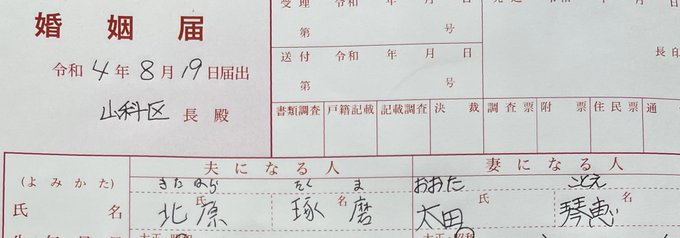 受理 令和 年 月 日
第 号
婚姻届
令和4年8月19日届出
送付 令和 年 月 日
第 号
長印
山科区 長殿
書類調査 戸籍記載 記載調査 決裁 調査票 附票 住民票 通
夫になる人 妻になる人
(よみかた) きたはら たくま おおた ことえ
氏名 氏 北原 名 琢磨 氏 太田 名 琴恵